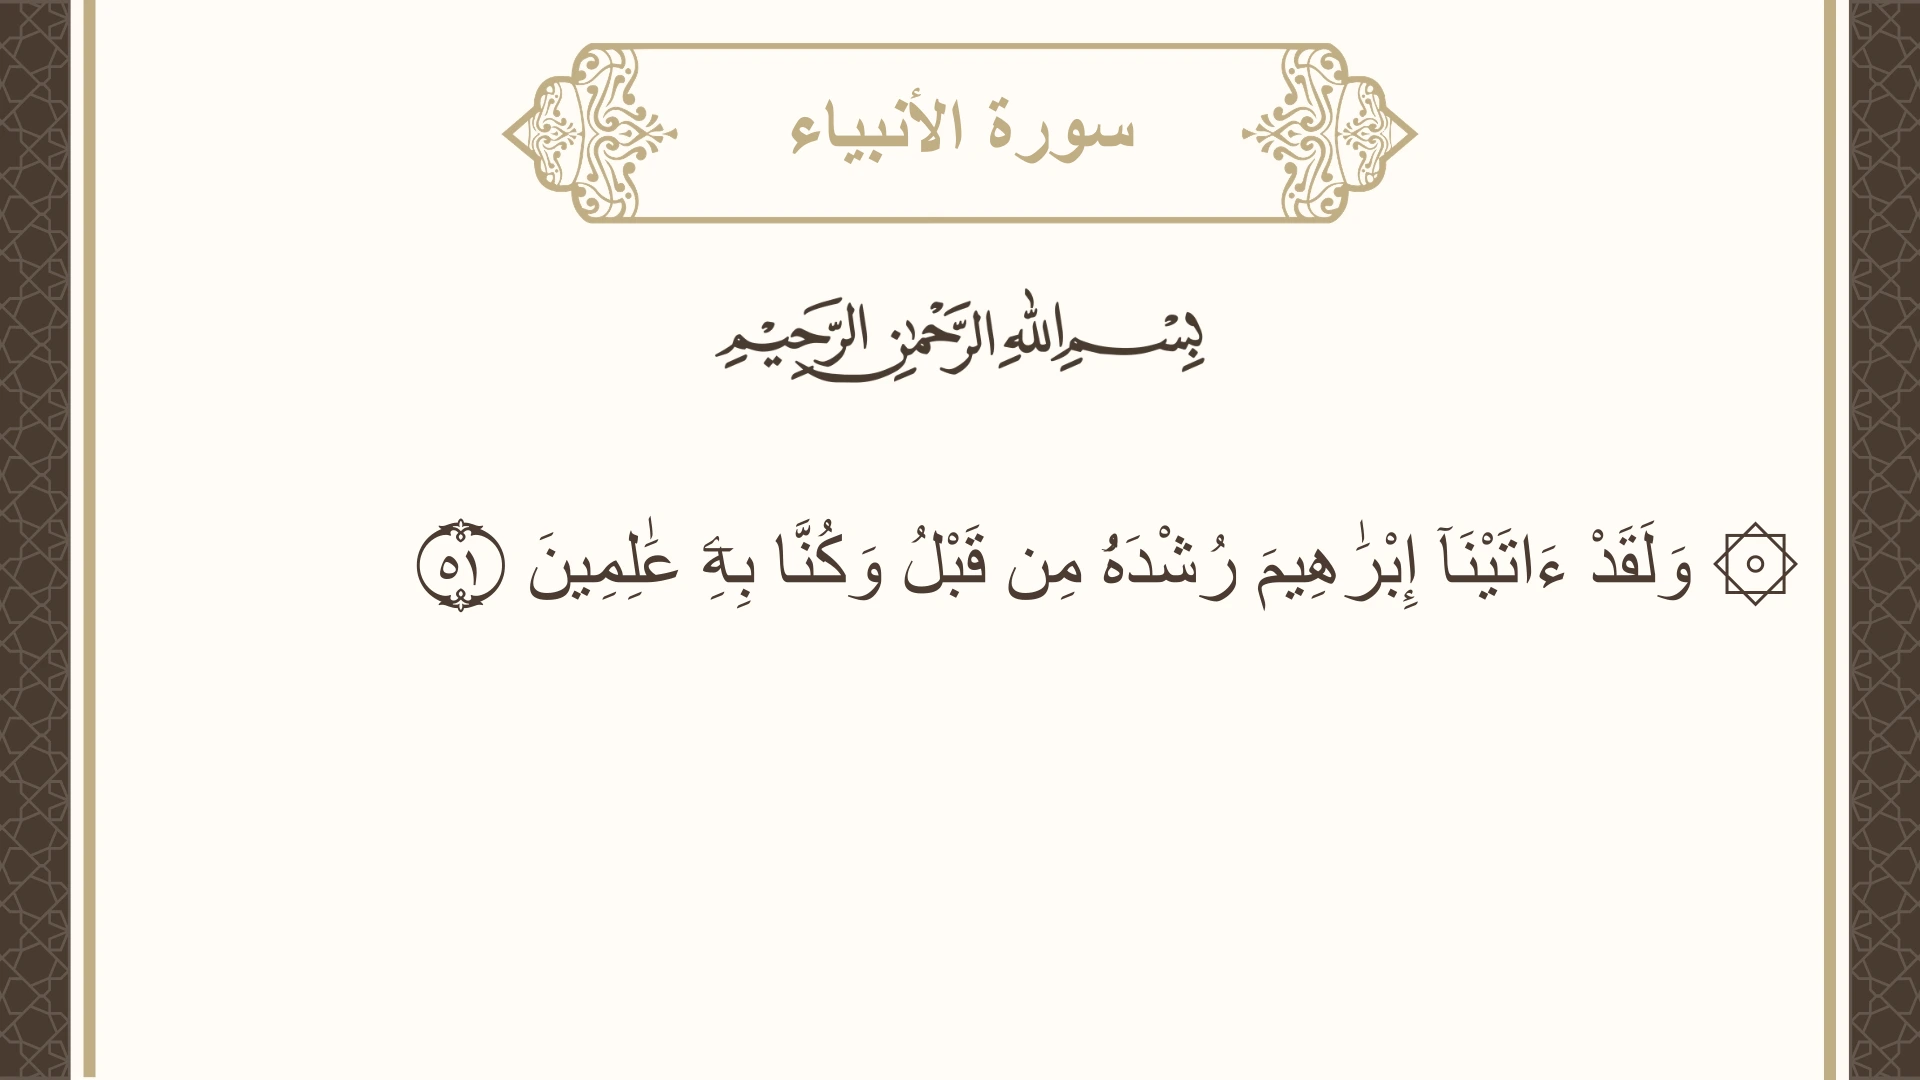 سورة الأنبياء
بِسْمِ اللهِ الرَّحْمٰنِ الرَّحِيْمِ
۞ وَلَقَدْ ءَاتَيْنَآ إِبْرَٰهِيمَ رُشْدَهُۥ مِن قَبْلُ وَكُنَّا بِهِۦ عَٰلِمِينَ ٥١